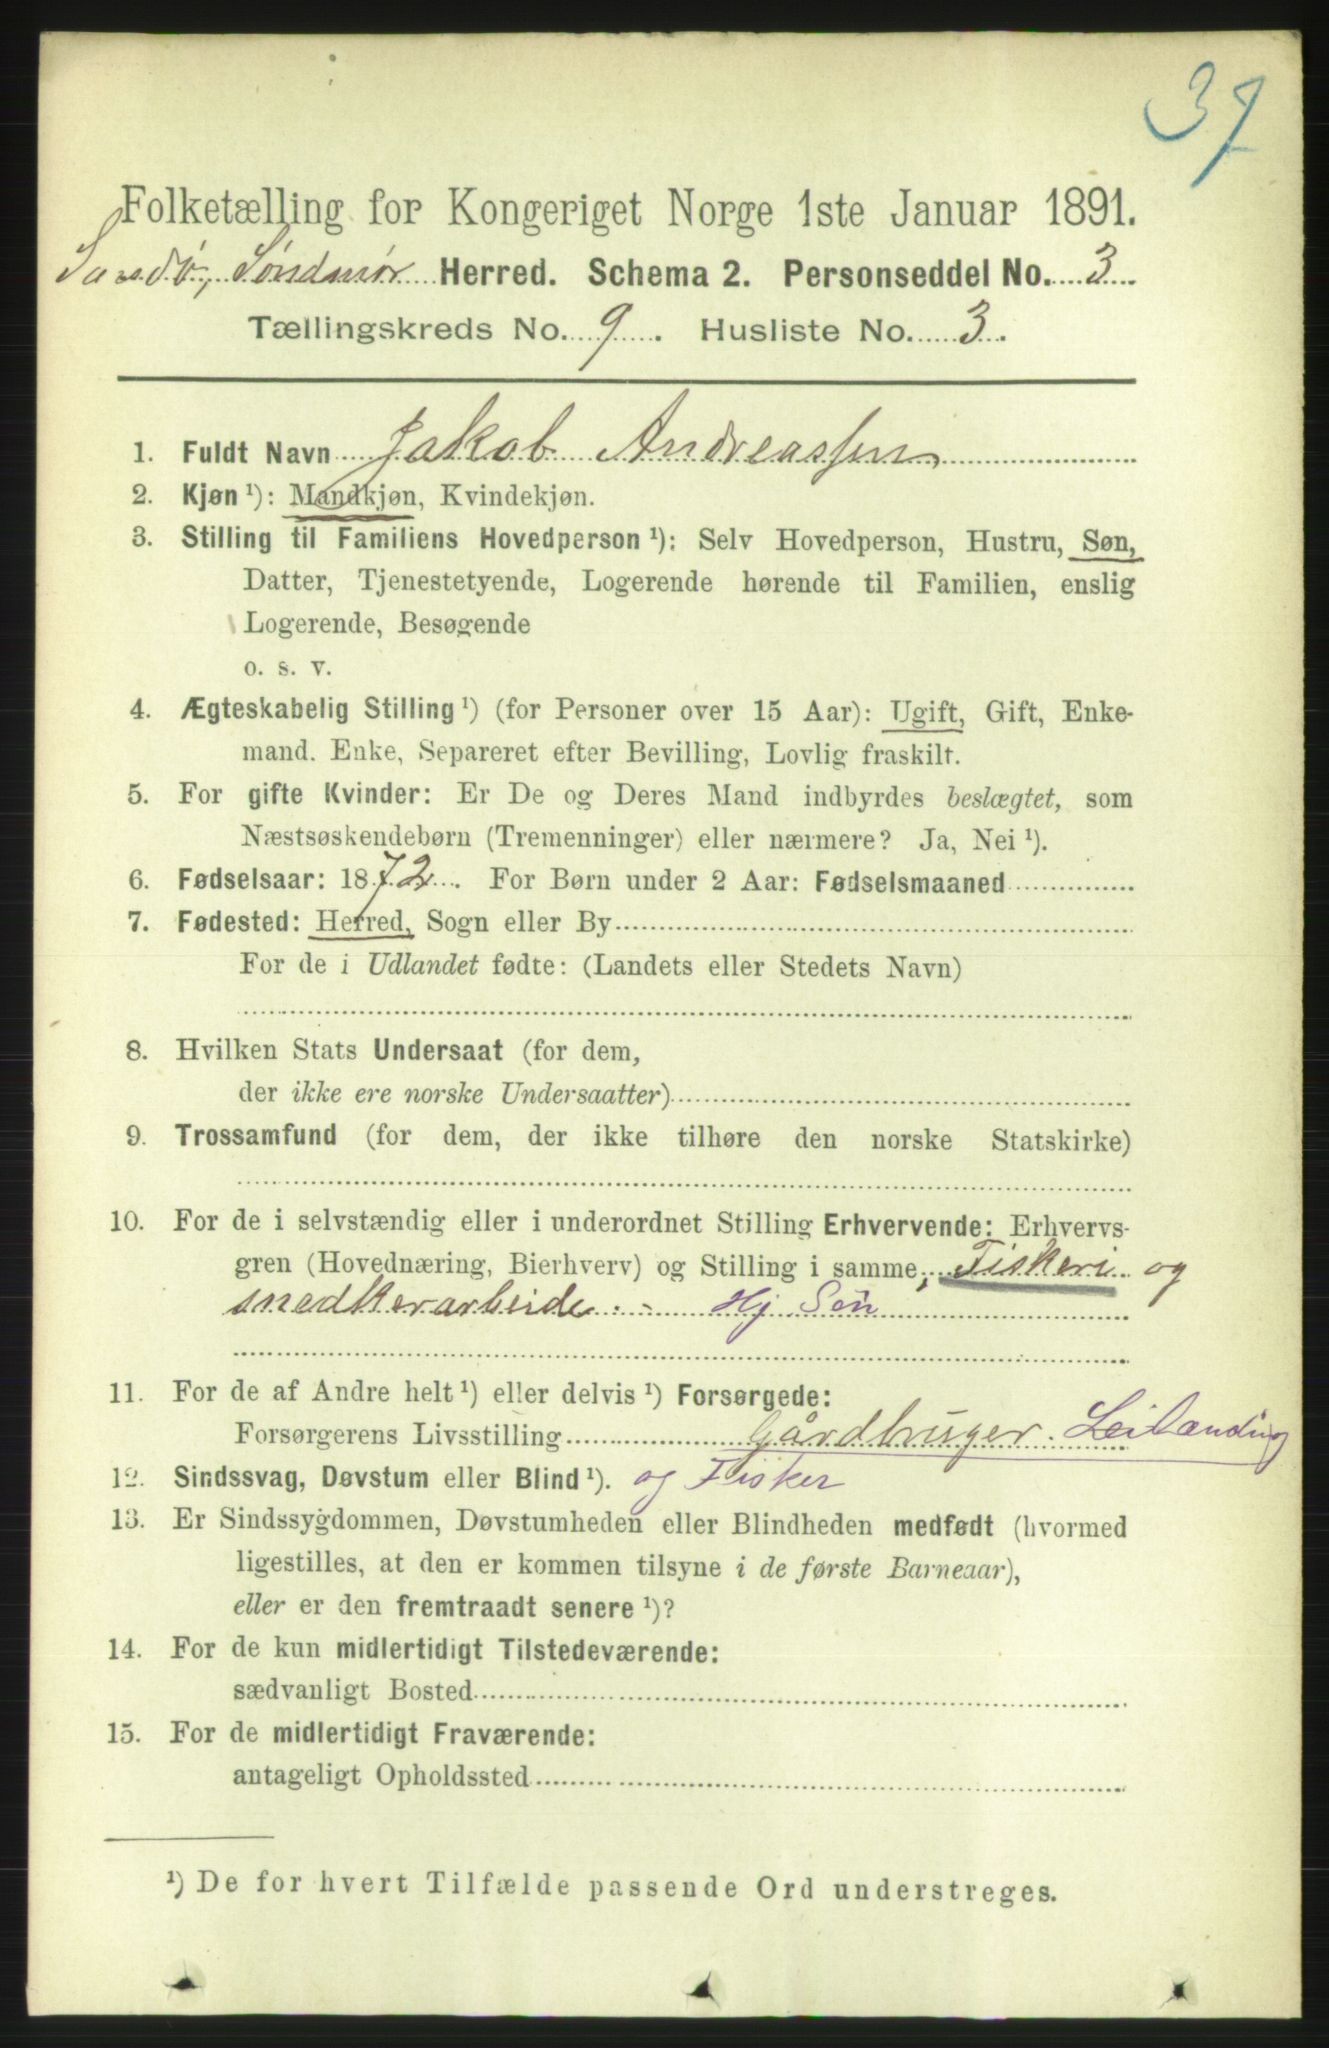 37
Folketælling for Kongeriget Norge 1ste Januar 1891.
Sandø, Søndmør Herred. Schema 2. Personseddel No. 3
Tællingskreds No. 9. Husliste No. 3.
1. Fuldt Navn Jakob Andreassen
2. Kjøn ¹): Mandkjøn, Kvindekjøn.
3. Stilling til Familiens Hovedperson ¹): Selv Hovedperson, Hustru, Søn,
Datter, Tjenestetyende, Logerende hørende til Familien, enslig
Logerende, Besøgende
o. s. v.
4. Ægteskabelig Stilling ¹) (for Personer over 15 Aar): Ugift, Gift, Enke-
mand. Enke, Separeret efter Bevilling, Lovlig fraskilt.
5. For gifte Kvinder: Er De og Deres Mand indbyrdes beslægtet, som
Næstsøskendebørn (Tremenninger) eller nærmere? Ja, Nei ¹).
6. Fødselsaar: 1872. For Børn under 2 Aar: Fødselsmaaned
7. Fødested: Herred, Sogn eller By
For de i Udlandet fødte: (Landets eller Stedets Navn)
8. Hvilken Stats Undersaat (for dem,
der ikke ere norske Undersaatter)
9. Trossamfund (for dem, der ikke tilhøre den norske Statskirke)
10. For de i selvstændig eller i underordnet Stilling Erhvervende: Erhvervs-
gren (Hovednæring, Bierhverv) og Stilling i samme, Fiskeri og
snedkerarbeide. - Hj Søn
11. For de af Andre helt ¹) eller delvis ¹) Forsørgede:
Forsørgerens Livsstilling Gårdbruger. Leilænding
12. Sindssvag, Døvstum eller Blind ¹). og Fisker
13. Er Sindssygdommen, Døvstumheden eller Blindheden medfødt (hvormed
ligestilles, at den er kommen tilsyne i de første Barneaar),
eller er den fremtraadt senere ¹)?
14. For de kun midlertidigt Tilstedeværende:
sædvanligt Bosted
15. For de midlertidigt Fraværende:
antageligt Opholdssted
¹) De for hvert Tilfælde passende Ord understreges.